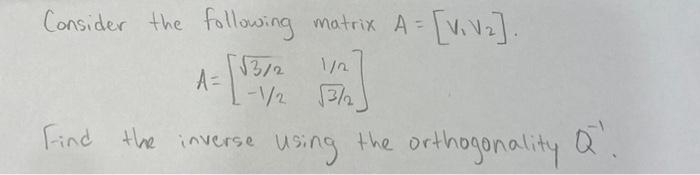 Consider the following matrix A = [V₁ V₂].
A = [√3/2 1/2
-1/2 √3/2]
Find the inverse using the orthogonality Q⁻¹.